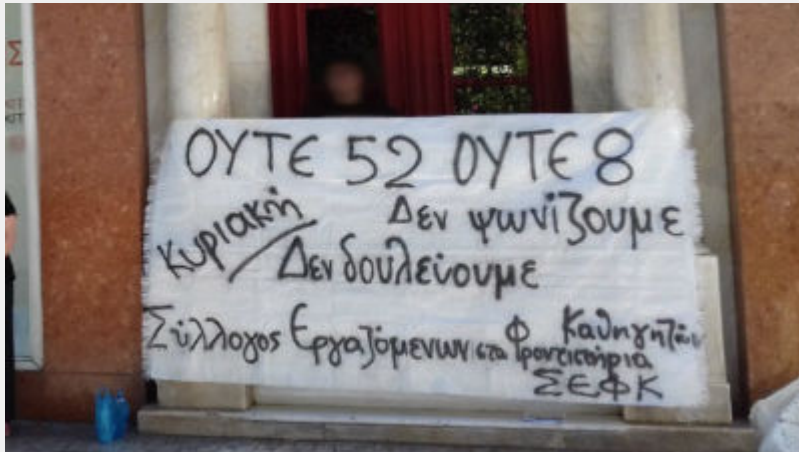 ΟΥΤΕ 52 ΟΥΤΕ 8
Κυριακή Δεν ψωνίζουμε
Δεν δουλεύουμε
Σύλλογος Εργαζόμενων στα Φροντιστήρια Καθηγητών
ΣΕΦΚ